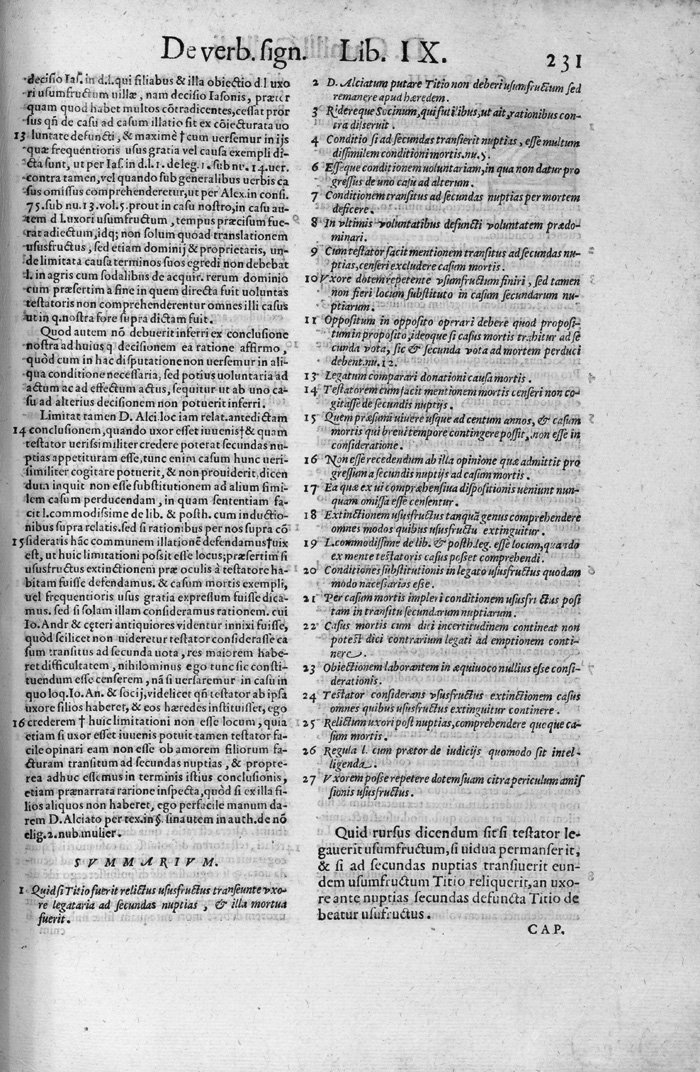 De verb. sign. Lib. IX. 231
decisio Ias. in d.l. qui filiabus & illa obiectio d l uxo
ri usumfructum uillæ, nam decisio Iasonis, præter
quam quod habet multos cõtradicentes, cessat pror
sus qñ de casu ad casum illatio fit ex cõiecturata uo
13 luntate defuncti, & maximè † cum uersemur in ijs
quæ frequentioris usus gratia vel causa exempli di-
cta sunt, ut per Ias. in d.l. 1. de leg. 1. sub nu. 14. uer.
contra tamen, vel quando sub generalibus uerbis ca
sus omissus comprehenderetur, ut per Alex. in consi.
75. sub nu. 13. vol. 5. prout in casu nostro, in casu au-
tem d l. uxori usumfructum, tempus præcisum fue-
rat adiectum, idq; non solum quoad translationem
ususfructus, sed etiam dominij & proprietatis, un-
de limitata causa terminos suos egredi non debebat
l. in agris cum sodalibus de acquir. rerum dominio
cum præsertim à fine in quem directa fuit uoluntas
testatoris non comprehenderentur omnes illi casus
ut in q. nostra fore supra dictam fuit.
Quod autem nõ debuerit inferri ex conclusione
nostra ad huius q decisionem ea ratione affirmo,
quòd cum in hac disputatione non uersemur in ali-
qua conditione necessaria, sed potius uoluntaria ad
actum ac ad effectum actus, sequitur ut ab uno ca-
su ad alterius decisionem non potuerit inferri.
Limitat tamen D. Alci. loc iam relat. antedictam
14 conclusionem, quando uxor esset iuuenis † & quam
testator uerissimiliter credere poterat secundas nu-
ptias appetituram esse, tunc enim casum hunc ueri-
similiter cogitare potuerit, & non prouiderit. dicen
dum inquit non esse substitutionem ad alium simi-
lem casum perducendam, in quam sententiam fa-
cit l. commodissime de lib. & posth. cum inductio-
nibus supra relatis. sed si rationibus per nos supra cõ
15 sideratis hãc communem illationẽ defendamus † uix
est, ut huic limitationi possit esse locus; præsertim si
ususfructus extinctionem præ oculis à testatore ha-
bitam fuisse defendamus. & casum mortis exempli,
vel frequentioris usus gratia expressum fuisse dica-
mus. sed si solam illam consideramus rationem. cui
Io. Andr & cęteri antiquiores videntur innixi fuisse,
quòd scilicet non uideretur testator considerasse ca
sum transitus ad secunda uota, res maiorem habe-
ret difficultatem, nihilominus ego tunc sic consti-
tuendum esse censerem, nã si uersaremur in casu in
quo loq. Io. An. & socij, videlicet qñ testator ab ipsa
uxore filios haberet, & eos hæredes instituisset, ego
16 crederem † huic limitationi non esse locum, quia
etiam si uxor esset iuuenis potuit tamen testator fa-
cile opinari eam non esse ob amorem filiorum fa-
cturam transitum ad secundas nuptias, & propte-
rea adhuc essemus in terminis istius conclusionis,
etiam prænarrata ratione inspecta, quòd si ex illa fi-
lios aliquos non haberet, ego perfacile manum da-
rem D. Alciato per tex. in §. sin autem in auth. de nõ
elig. 2. nub. mulier.
SVMMARIVM.
1 Quid si Titio fuerit relictus ususfructus transeunte vxo-
re legataria ad secundas nuptias, & illa mortua
fuerit.
2 D. Alciatum putare Titio non deberi usumfructum sed
remanere apud hæredem.
3 Ridereque Socinum, qui futilibus, ut ait, rationibus con-
tra disseruit.
4 Conditio si ad secundas transierit nuptias, esse multum
dissimilem conditioni mortis. nu. 5.
6 Esseque conditionem uoluntariam, in qua non datur pro
gressus de uno casu ad alterum.
7 Conditionem transitus ad secundas nuptias per mortem
deficere.
8 In vltimis voluntatibus defuncti voluntatem prædo-
minari.
9 Cum testator facit mentionem transitus ad secundas nu-
ptias, censeri excludere casum mortis.
10 Vxore dotem repetente vsumfructum finiri, sed tamen
non fieri locum substituto in casum secundarum nu-
ptiarum.
11 Oppositum in opposito operari debere quod proposi-
tum in proposito, ideoque si casus mortis trahitur ad se
cunda vota, sic & secunda vota ad mortem perduci
debent. nu. 12.
13 Legatum comparari donationi causa mortis.
14 Testatorem cum facit mentionem mortis censeri non co-
gitasse de secundis nuptijs.
15 Quem præsumi uiuere usque ad centum annos, & casum
mortis qui breui tempore contingere possit, non esse in
consideratione.
16 Non esse recedendum ab illa opinione quæ admittit pro
gressum a secundis nuptijs ad casum mortis.
17 Ea quæ ex ui compræhensiua dispositionis ueniunt nun-
quam omissa esse censentur.
18 Extinctionem ususfructus tanquã genus comprehendere
omnes modos quibus ususfructu extinguitur.
19 L. commodissime de lib. & posth. leg. esse locum, quando
ex mente testatoris casus posset comprehendi.
20 Conditiones substitutionis in legato ususfructus quodam
modo necesarias esse.
21 Per casum mortis impleri conditionem ususfructus posi
tam in transitu secundarum nuptiarum.
22 Casus mortis cum diei incertitudinem contineat non
potest dici contrarium legati ad emptionem conti-
nere.
23 Obiectionem laborantem in æquiuoco nullius esse consi-
derationis.
24 Testator considerans vsusfructus extinctionem casus
omnes quibus ususfructus extinguitur continere.
25 Relictum uxori post nuptias, comprehendere quoque ca-
sum mortis.
26 Regula l. cum prætor de iudicijs quomodo sit intel-
ligenda.
27 Vxorem posse repetere dotem suam citra periculum amis
sionis ususfructus.
Quid rursus dicendum sit si testator le-
gauerit usumfructum, si uidua permanserit,
& si ad secundas nuptias transiuerit eun-
dem usumfructum Titio reliquerit, an uxo-
re ante nuptias secundas defuncta Titio de
beatur usufructus.
CAP.